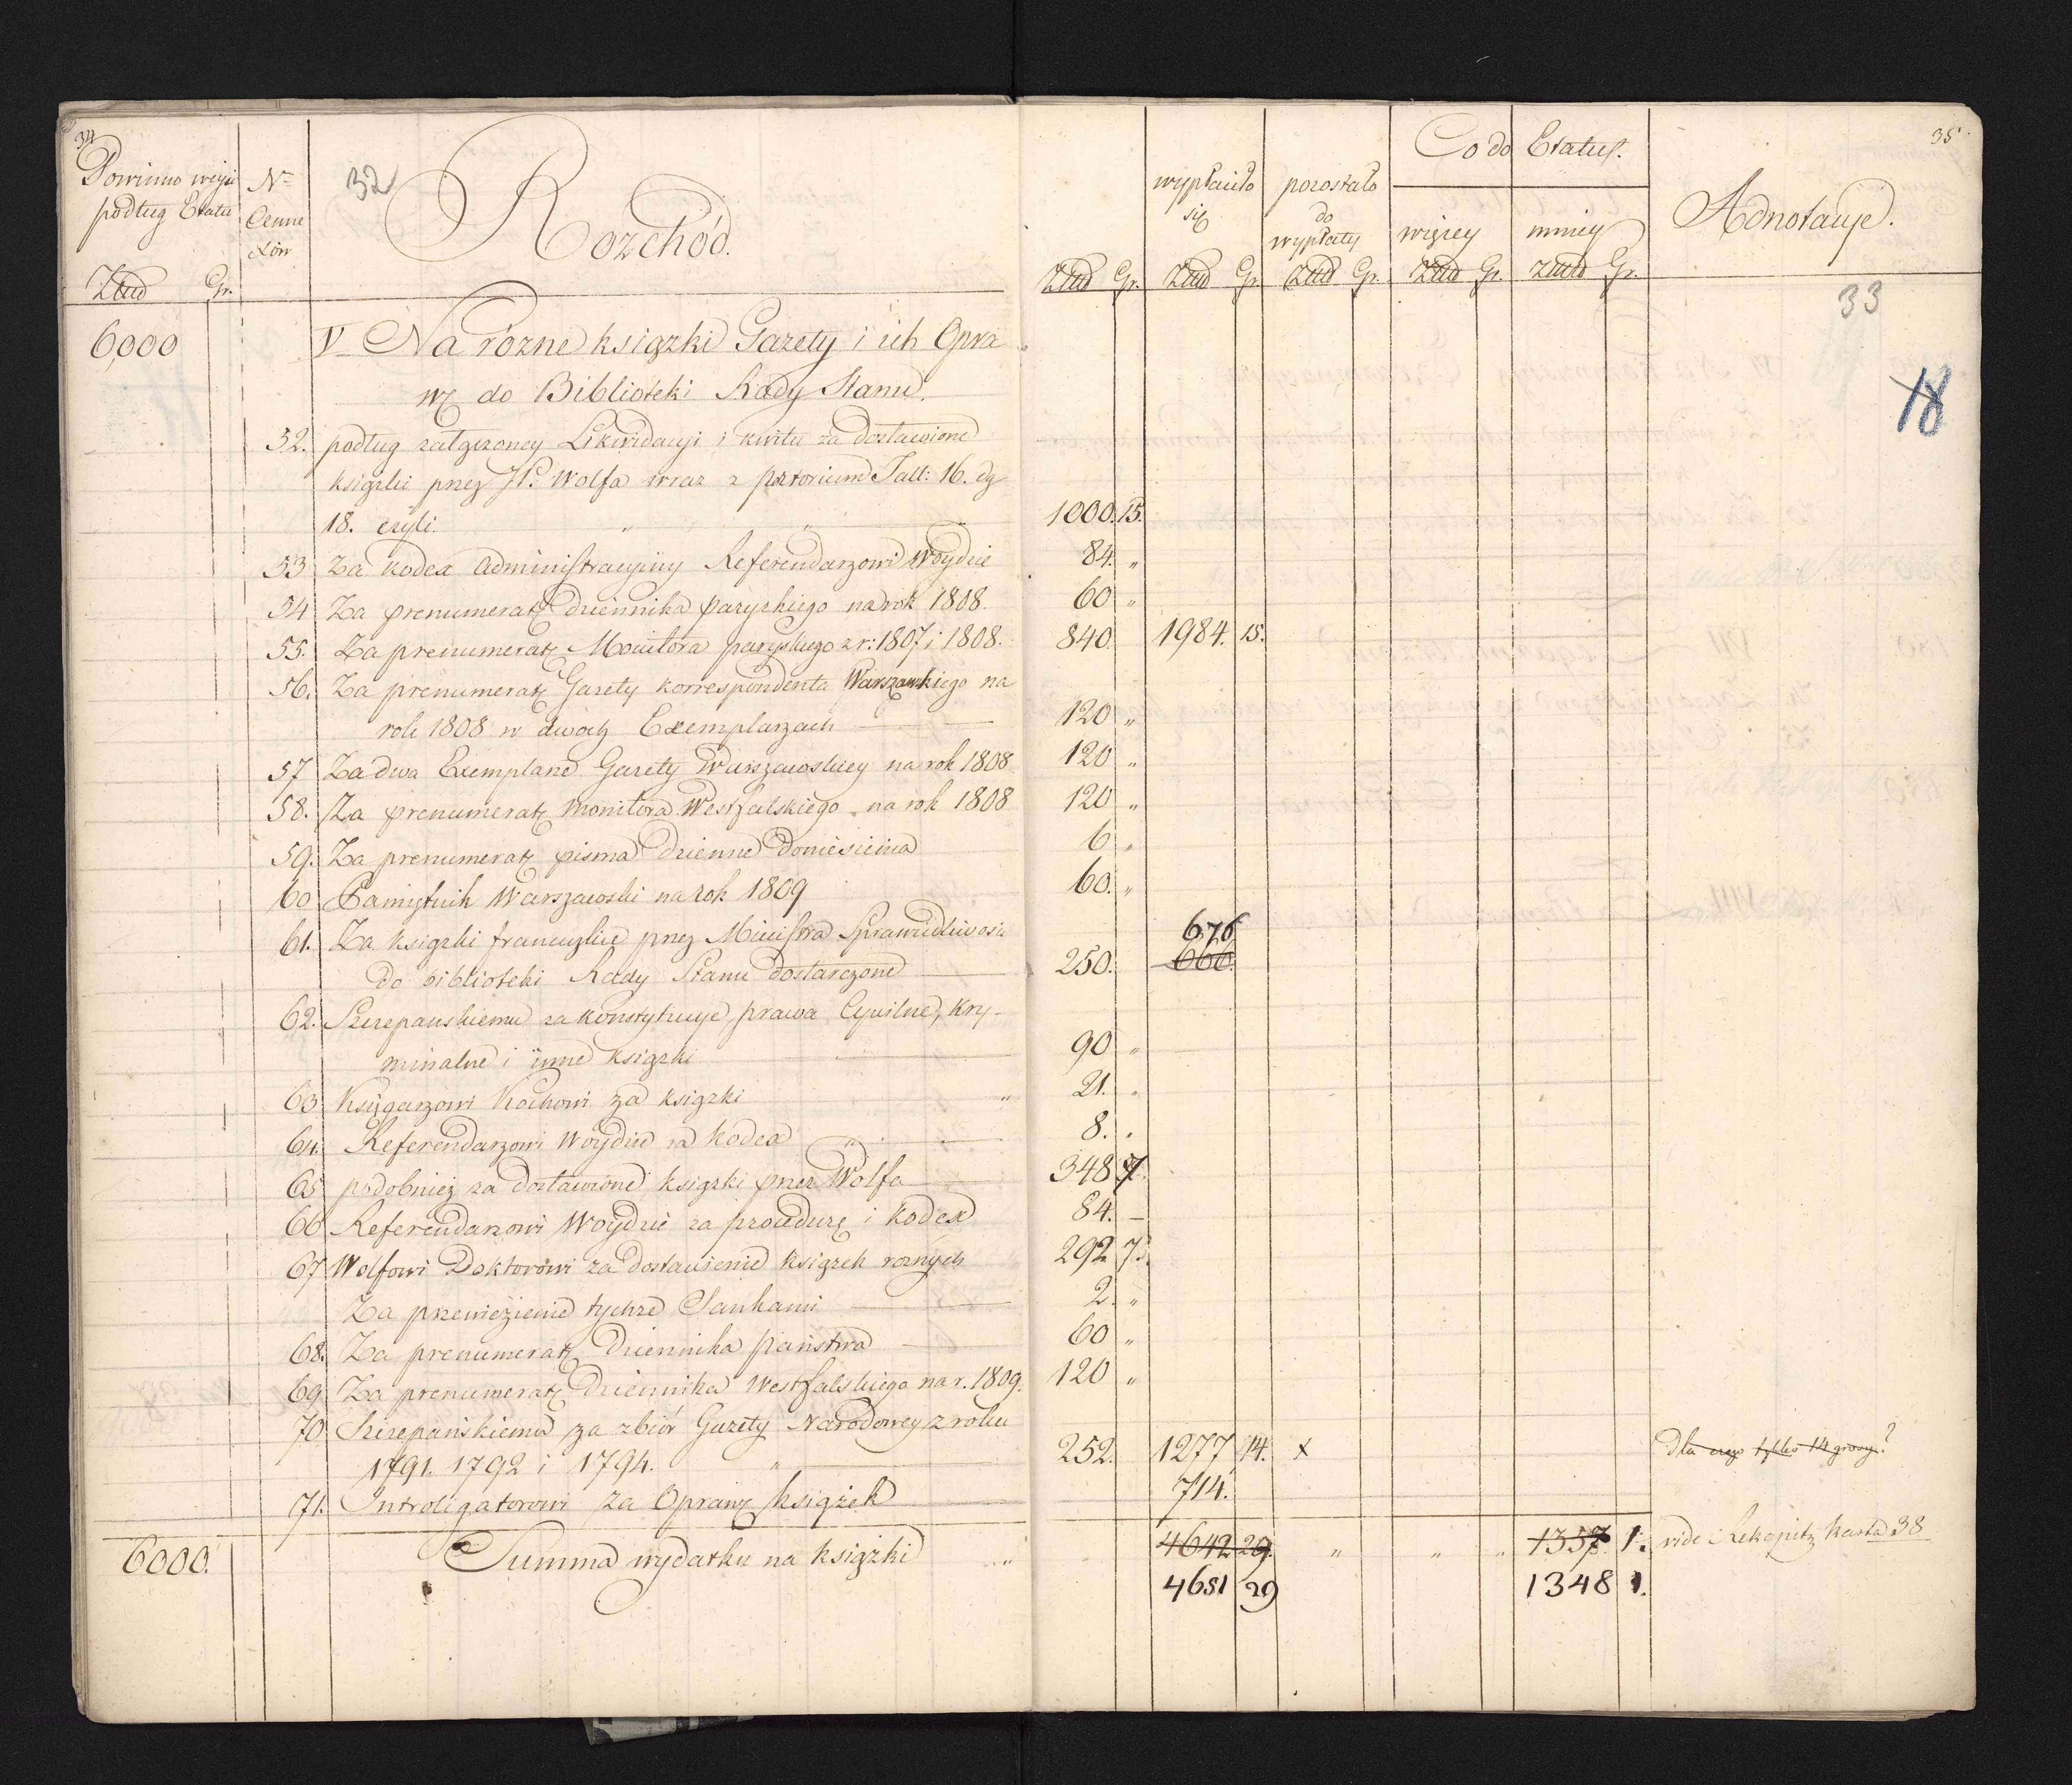 34
Powinno weyść podług Etatu
Nro
32
Rozchód.
Złłd Gr.
6,000
V. Na rózne książki Gazety i ich Opra
wę do Biblioteki Rady Stanu.
52. podług załączoney Likwidacyi i kwitu za dostawione
książki przez JP. Wolfa wraz z portorium Tall: 16. dg
18. czyli.
53 Za kodex Administracyiny Referendarzowi Woydzie
54 Za prenumeratę dziennika paryzkiego na rok 1808.
55. Za prenumeratę Monitora paryskiego z r: 1807 i 1808.
56. Za prenumeratę Gazety korrespondenta Warszawskiego na
rok 1808 w dwóch Exemplarzach
57 Za dwa Exemplarze Gazety Warszawskiey na rok 1808
58. Za prenumeratę Monitora Westfalskiego na rok 1808
59. Za prenumeratę pisma Dzienne Doniesienia
60 Pamiętnik Warszawski na Rok 1809
61. Za książki francuzkie przez Ministra Sprawiedliwości
do biblioteki Rady Stanu dostarczone
62. Szczepanskiemu za konstytucye, prawa Cywilne, kry-
minalne i inne książki
63 Księgarzowi Kochowi za książki "
64. Referendarzowi Woydzie za Kodex
65 podobnież za Dostawione książki przez Wolfa
66 Referendarzowi Woydzie za procedurę i Kodex
67 Wolfowi Doktorowi za dostawienie książek roznych
Za przewiezienie tychże Sankami
68. Za prenumeratę Dziennika państwa
69 Za prenumeratę Dziennika Westfalskiego na r. 1809.
70 Szczepańskiemu za zbiór Gazety Narodowey z roku
1791. 1792 i 1794. "
71. Introligatorowi za Oprawę książek
6000. Summa wydatku na książki "
35
Co do Etatu.
wypłaciło się
pozostało do wypłaty
więcey
mniey
Adnotacye.
Złłd Gr. Złłd Gr. Złłd Gr. Złłd Gr. Złłd Gr.
33
18
1000. 15.
84. "
60 "
840. 1984. 15.
120 "
120 "
120 "
6 "
60. "
676
250. 666.
90 "
21. "
8. "
348 7.
84. –
292 7.
2. "
60 "
120 "
252. 1277 14. x dla czego tylko 14 groszy?
714.
4642 29. " " " 1357. 1. vide Rekapitę karta 38
4651 29 1348 1.